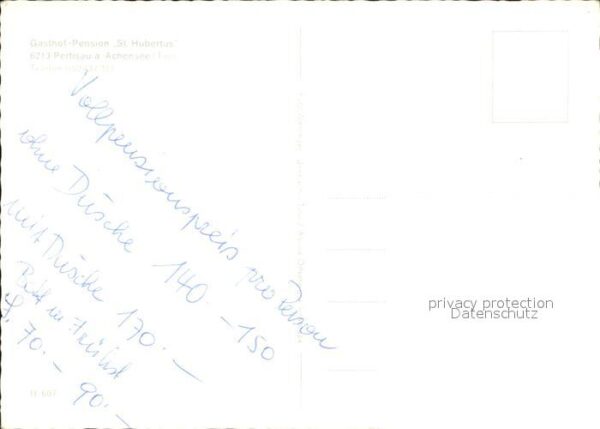 Gasthof-Pension „St. Hubertus"
6213 Pertisau a. Achensee / Tirol
Vollpensionspreis pro Person
ohne Dusche 140.- -150
mit Dusche 170.-
Bett m Frühst
S. 70.- 90.-
H 667
privacy protection
Datenschutz